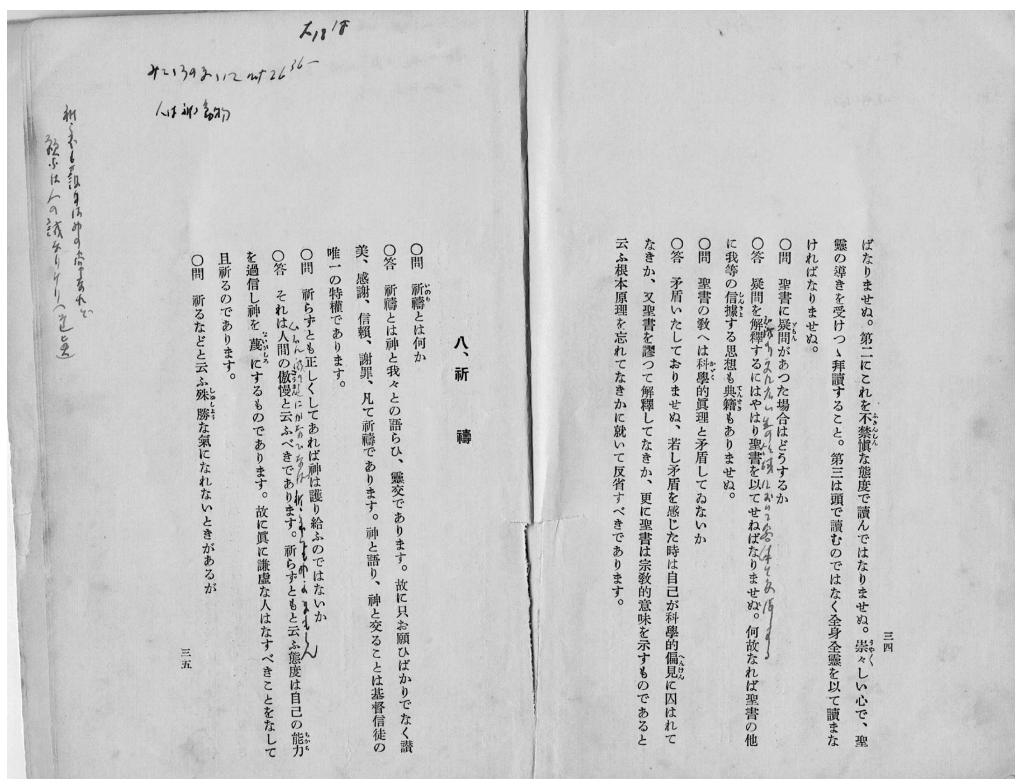 ばなりませぬ。第二にこれを不禁愼な態度で讀んではなりませぬ。崇々しい心で、聖
靈の導きを受けつゝ拜讀すること。第三は頭で讀むのではなく全身全靈を以て讀まな
ければなりませぬ。
〇問　聖書に疑問があつた場合はどうするか
〇答　疑問を解釋するにはやはり聖書を以てせねばなりませぬ。何故なれば聖書の他
に我等の信據する思想も典籍もありませぬ。
〇問　聖書の敎へは科學的眞理と矛盾してゐないか
〇答　矛盾いたしておりませぬ、若し矛盾を感じた時は自己が科學的偏見に囚はれて
なきか、又聖書を謬つて解釋してなきか、更に聖書は宗敎的意味を示すものであると
云ふ根本原理を忘れてなきかに就いて反省すべきであります。
三四
八、祈　禱
〇問　祈禱とは何か
〇答　祈禱とは神と我々との語らひ、靈交であります。故に只お願ひばかりでなく讃
美、感謝、信賴、謝罪、凡て祈禱であります。神と語り、神と交ることは基督信徒の
唯一の特權であります。
〇問　祈らずとも正しくしてあれば神は護り給ふのではないか
〇答　それは人間の傲慢と云ふべきであります。祈らずともと云ふ態度は自己の能力
を過信し神を蔑にするものであります。故に眞に謙虚な人はなすべきことをなして
且祈るのであります。
〇問　祈るなどと云ふ殊勝な氣になれないときがあるが
三五